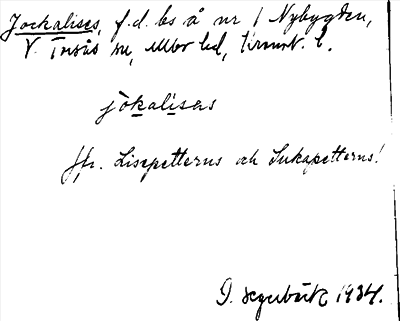 Jockalises, f.d. bs å nr 1 Nybygden,
V. Torsås sn, Allbo hd, Kronob. l.
jòkalisas
Jfr. Lisepetterus och Lukapetterus!
I. Segerbäck 1934.